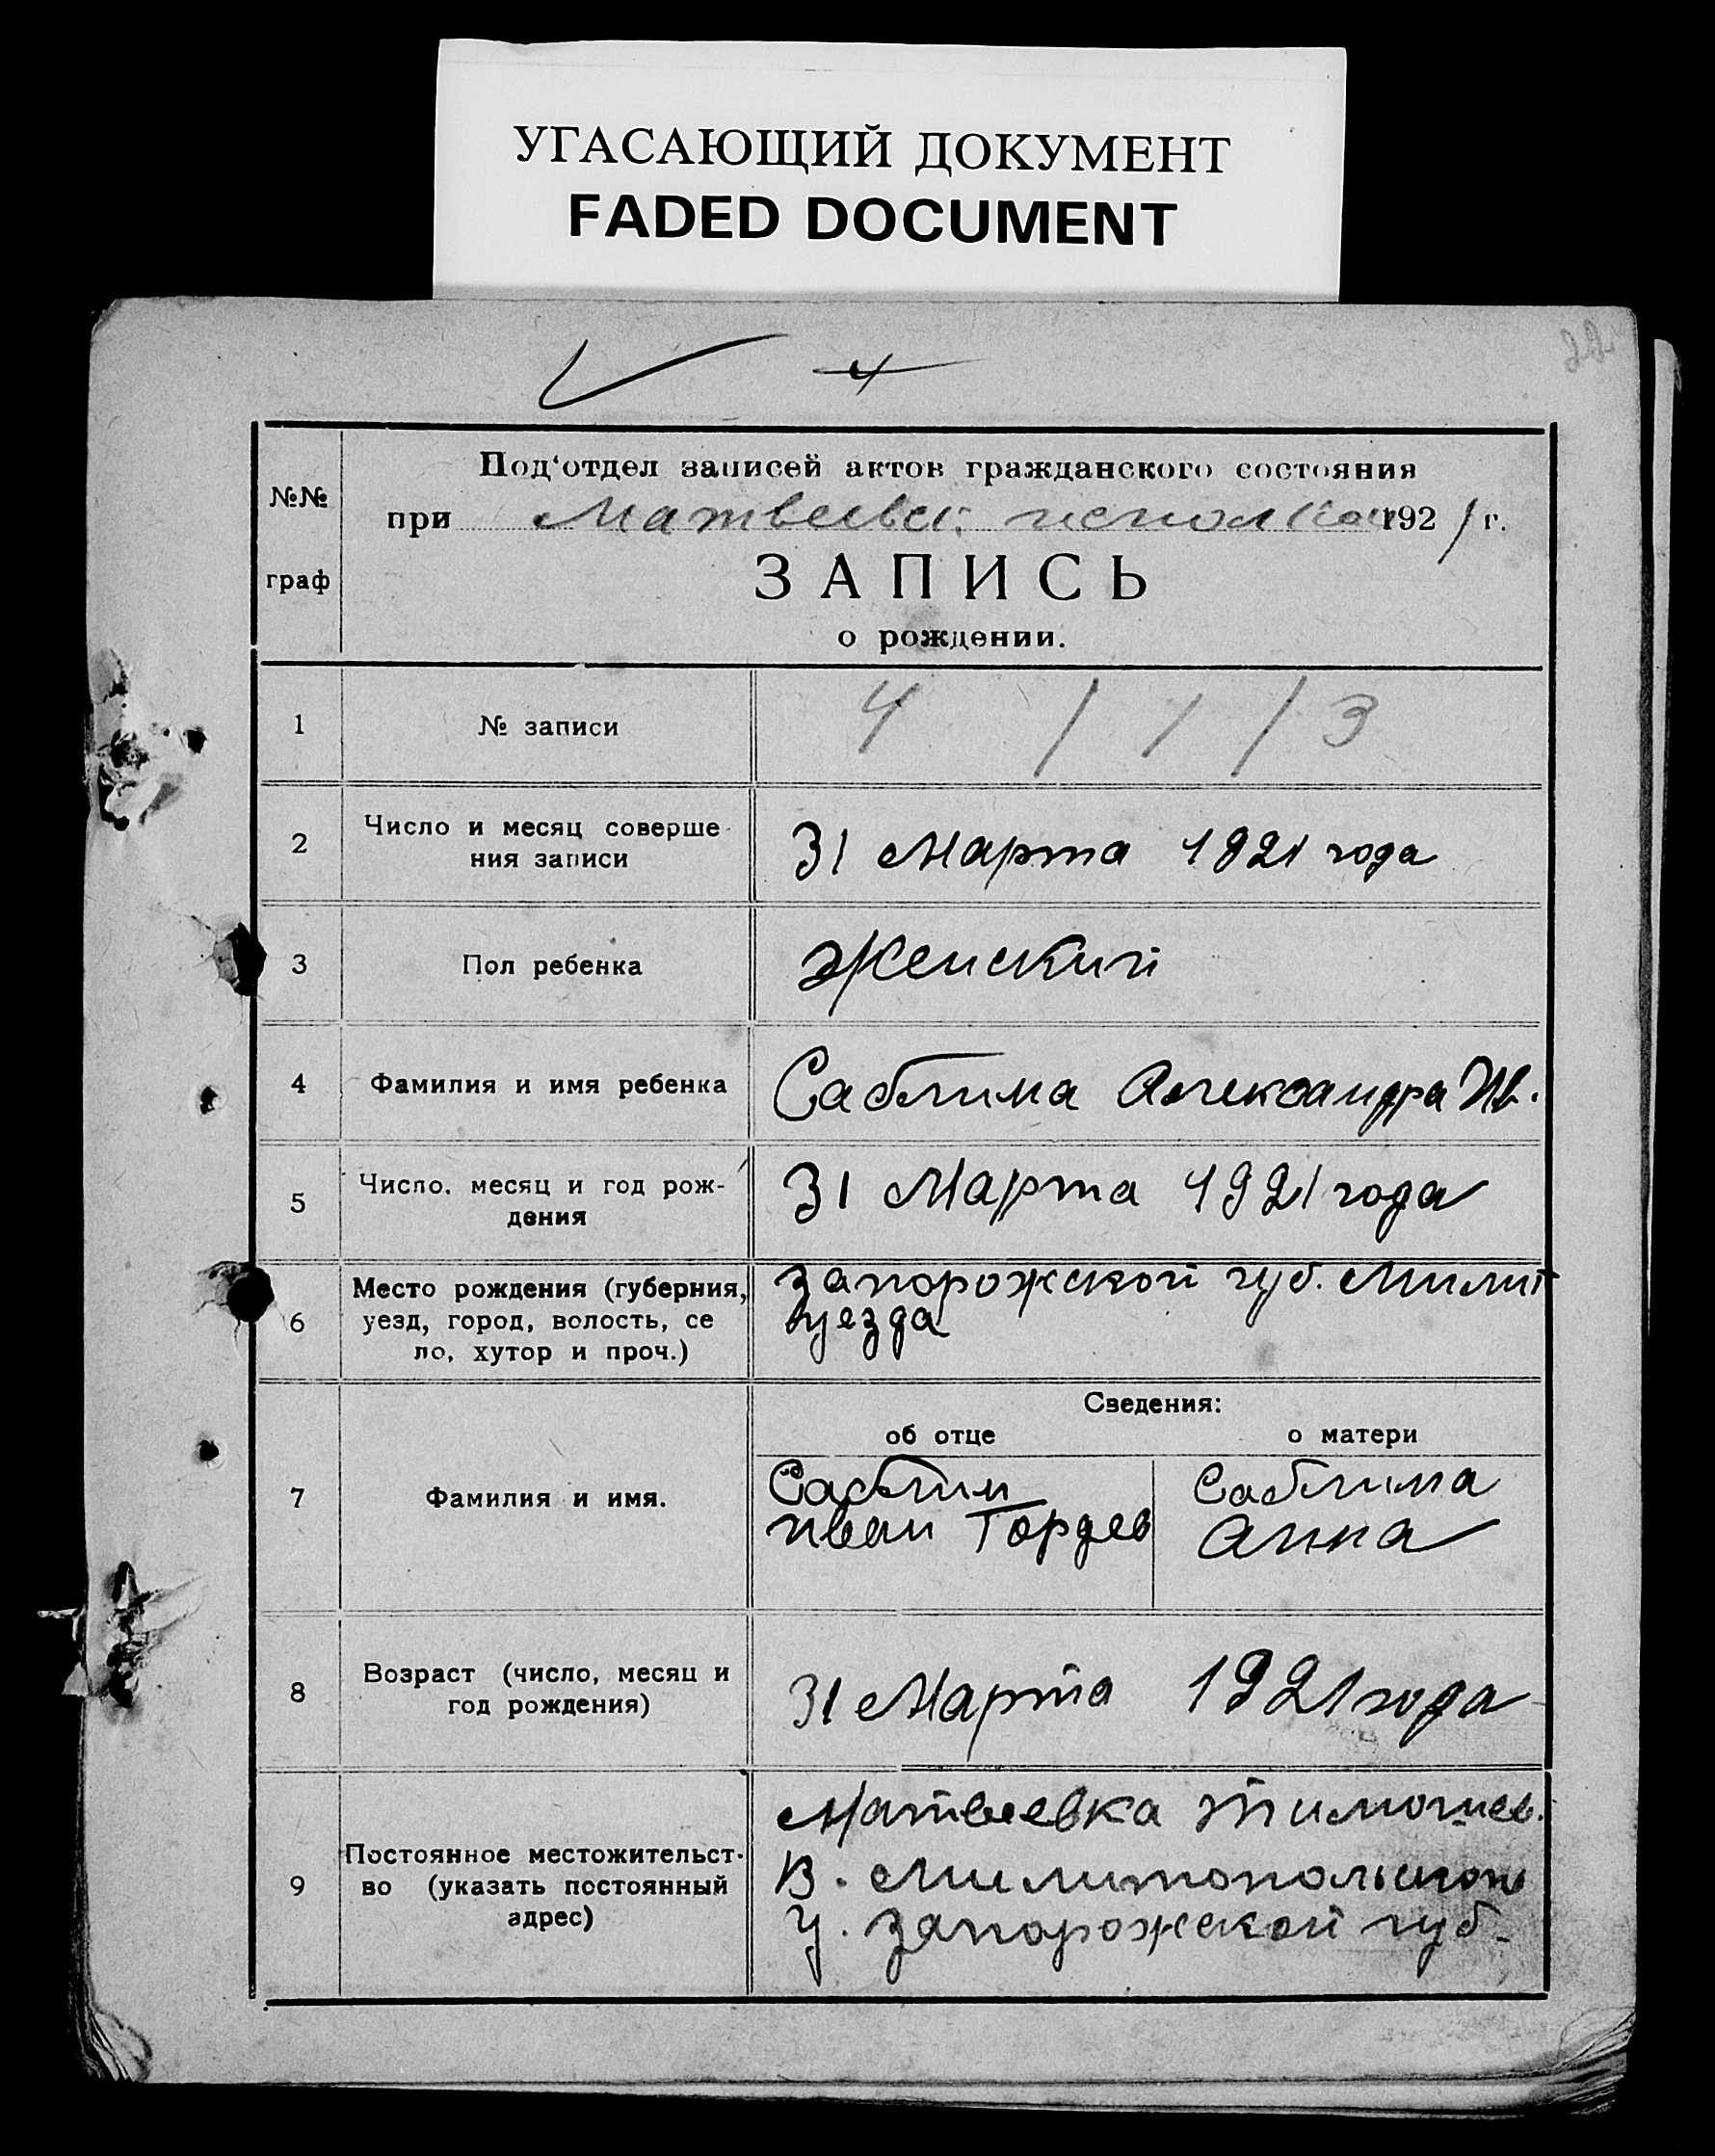 УГАСАЮЩИЙ ДОКУМЕНТ
FADED DOCUMENT
4
№№
граф
Под‘отдел записей актов гражданского состояния
при Матвеевск. исполком 1921 г.
ЗАПИСЬ
о рождении.
1 № записи 4 / 1 / 3
2 Число и месяц соверше
ния записи
31 Марта 1921 года
3 Пол ребенка Женский
4 Фамилия и имя ребенка Саблина Александра Ив.
5 Число, месяц и год рож-
дения
31 Марта 1921 года
6 Место рождения (губерния,
уезд, город, волость, се
ло, хутор и проч.)
Запорожской губ. Милит
уезда
Сведения:
об отце о матери
7 Фамилия и имя.
Саблин
Иван Гордев
Саблина
Анна
8 Возраст (число, месяц и
год рождения)
31 Марта 1921 года
9 Постоянное местожительст-
во (указать постоянный
адрес)
Матвеевка Тимошев.
В. Милитопольского
У. Запорожской губ.